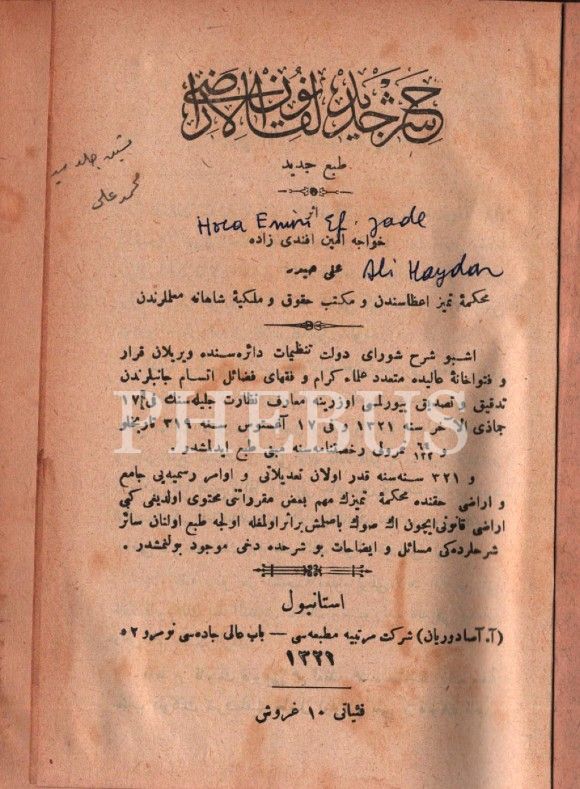 شرح جدید لقانون الاراضی
طبع جدید
متین جالد سید
محمد علی
اثر
Hoca Emini Ef. zade
خواجه امین افندی زاده
علی حیدر
Ali Haydar
محکمهٔ تمیز اعضاسندن و مکتب حقوق و ملکیهٔ شاهانه معلملرندن
اشبو شرح شورای دولت تنظیمات دائره‌سنده ویریلان قرار
و فتواخانهٔ عالیده متعدد علماء کرام و فقهای فضائل اتسام جانبلرندن
تدقیق و تصدیق بیورلمسی اوزرینه معارف نظارت جلیله‌سنك فی ١٧
جمادی الآخر سنه ١٣٢١ و فی ١٧ اغستوس سنه ٣١٩ تاریخلو
و ٦٩/١٢٢ نمرولی رخصتنامه‌سنه مبنی طبع ایدلمشدر
و ٣٢١ سنه‌سنه قدر اولان تعدیلاتی و اوامر رسمیه‌یی جامع
و اراضی حقنده محکمهٔ تمیزك مهم بعض مقرراتنی محتوی اولدیغی کبی
اراضی قانونی ایچون اك صوك باصلمش براثر اولمغله اولجه طبع اولنان سائر
شرحلرده‌کی مسائل و ایضاحات بو شرحده دخی موجود بولنمشدر .
PHEBUS
استانبول
(آ. آصادوریان) شرکت مرتبیه مطبعه‌سی — باب عالی جاده‌سی نومرو ٥٢
١٣٢١
فئیاتی ١٠ غروش